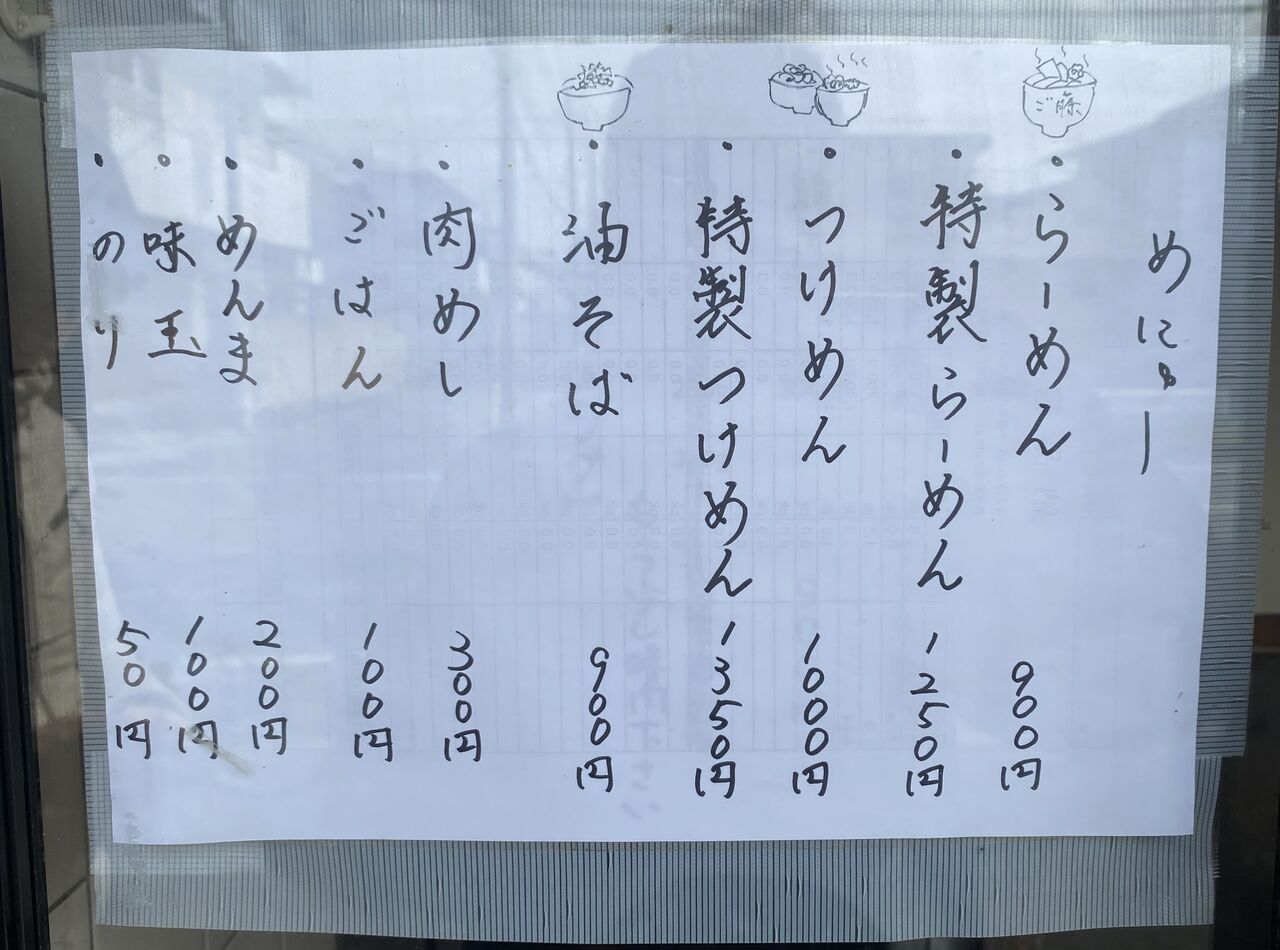 めにゅー
ご藤
・らーめん 900円
・特製らーめん 1250円
・つけめん 1000円
・特製つけめん 1350円
・油そば 900円
・肉めし 300円
・ごはん 100円
・めんま 200円
・味玉 100円
・のり 50円